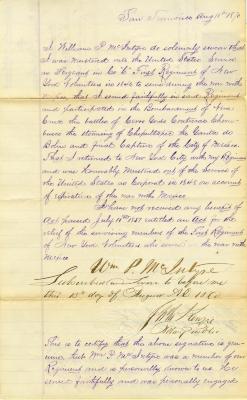 San Francisco Aug 15th
I William P. McIntyre do solemnly swear that
I was mustered into the United States Service
as Sergeant in Co. First Regiment of New
York Volunteers in 1846 to serve during the war with
Mexico, that I served faithfully in said Regiment
and participated in the Bombardment of Vera
Cruz the battles of Cerro Gordo Contreras Churu-
busco the storming of Chapultepec the Garita de
Belen and final Capture of the City of Mexico.
That I returned to New York City with my Regiment
and was honorably mustered out of the Service of
the United States as Corporal in 1848 on account
of expiration of the war with Mexico
I have not received any benefit of
Act passed July entitled an Act for the
relief of the surviving members of the First Regiment
of New York Volunteers who served in the war with
Mexico
Wm P. McIntyre
Subscribed and sworn to before me
this 15th day of August AD
Notary Public
This is to certify that the above signature is gen-
uine that Wm P. McIntyre was a member of our
Regiment and is personally known to us. He
served faithfully and was personally engaged